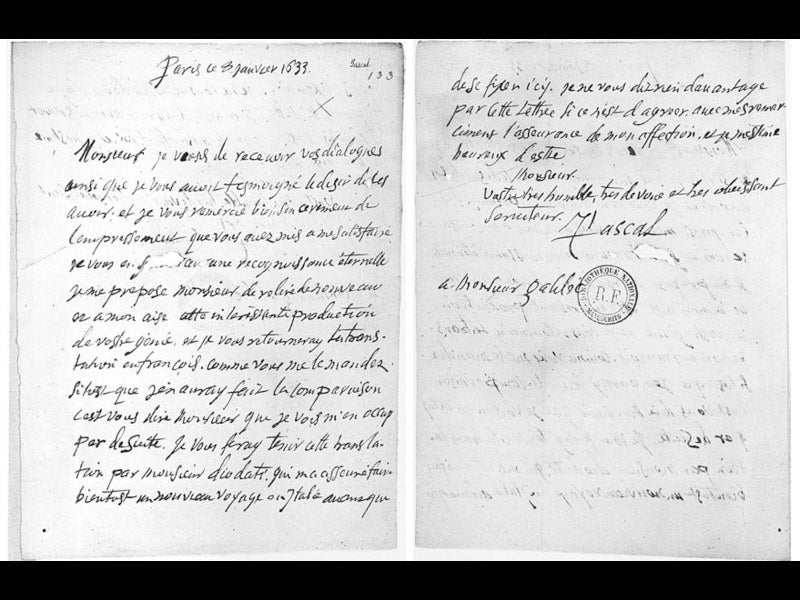 Paris ce 8 janvier 1633.
Pascal
133
Monsieur je viens de recevoir vos dialogues
ainsi que je vous avois tesmoigné le desir de les
avoir. et je vous remercie bien sincerement de
l'empressement que vous avez mis a me satisfaire
je vous en une recognoissance éternelle
je me propose monsieur de relire de nouveau
et a mon aise cette interessante production
de vostre génie. et je vous retourneray la trans-
lation en françois. comme vous me le mandez.
sitost que j'en auray fait la comparaison
c'est vous dire Monsieur que je vais m'en occup
per de suite. Je vous feray tenir cette transla-
tion par monsieur diodati. qui m'a assuré faire
bientost un nouveau voyage en Italie avant que
de se fixer icy. je ne vous dis rien davantage
par cette lettre si ce n'est d'agreer avec mes remer-
ciment l'asseurance de mon affection. et je m'estime
heureux d'estre
Monsieur
Vostre tres humble, tres devoué et tres obeissant
serviteur.
Pascal
a Monsieur galilée
BIBLIOTHÈQUE NATIONALE
R.F.
MANUSCRITS